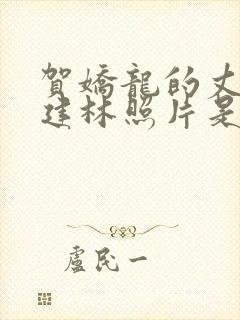 賀嬌龍的丈
建林照片是
盧民一